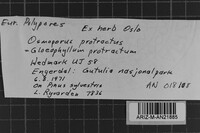 Eur. Polypores
Ex herb Oslo
Osmoporus protractus
- Gloeophyllum protractum
Hedmark UJ 58
Engerdal: Gutulia nasjonalpark
6.8. 1971
on Pinus sylvestris
AN 018185
L. Ryvarden 7836
ARIZ-M-AN21885